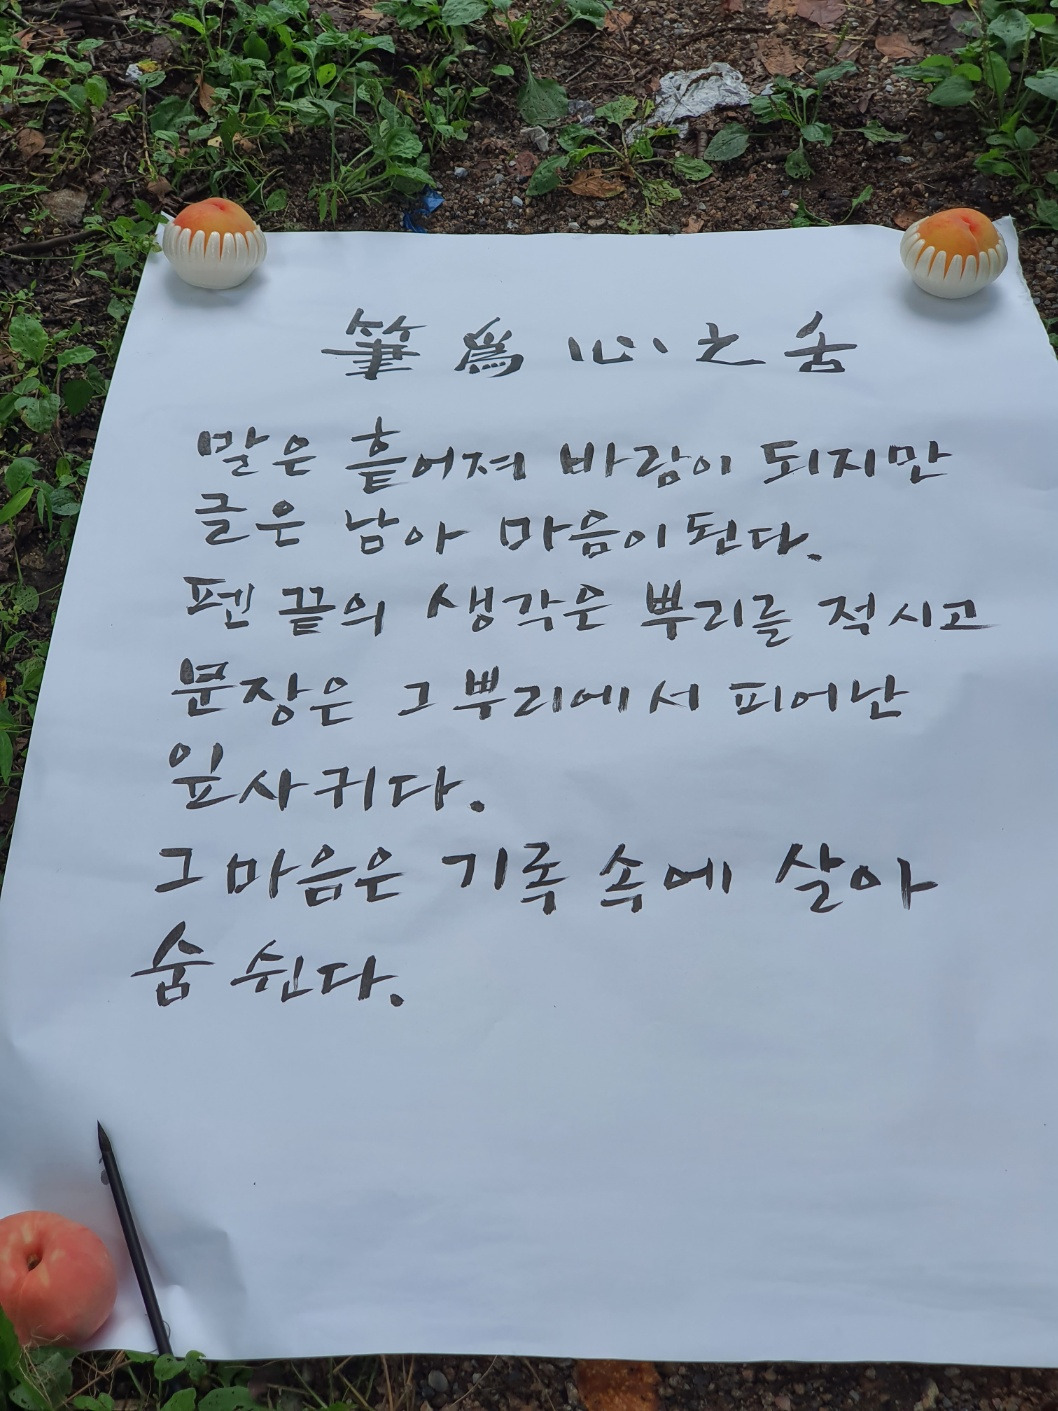 筆爲心之舌
말은 흩어져 바람이 되지만
글은 남아 마음이 된다.
펜 끝의 생각은 뿌리를 적시고
문장은 그 뿌리에서 피어난
잎사귀다.
그 마음은 기록 속에 살아
숨 쉰다.